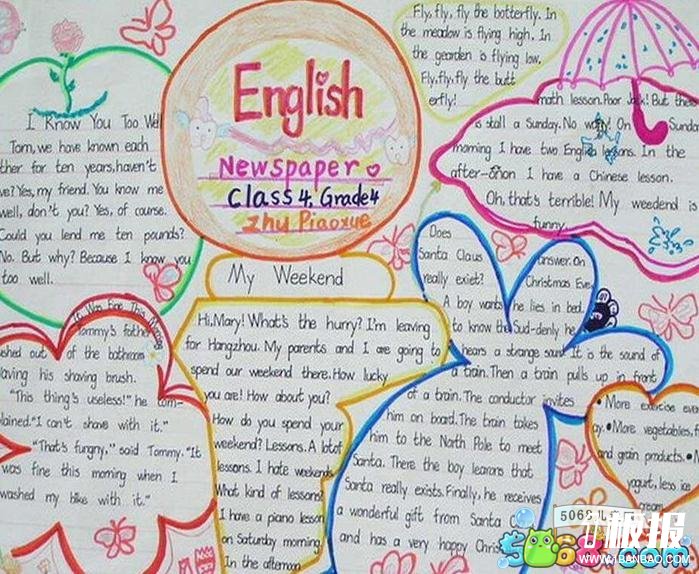 English
Newspaper
Class 4, Grade 4
Zhu Piaoxue
I Know You Too Well
Tom, we have known each
ther for ten years, haven't
ve? Yes, my friend. You know me
well, don't you? Yes, of course.
Could you lend me ten pounds?
No. But why? Because I know you
too well.
It Was Fine This Morning
Tommy's father
shed out of the bathroom
aving his shaving brush.
"This thing's useless!" he com-
lained. "I can't shave with it."
"That's fungny," said Tommy. "It
was fine this morning when I
washed my bike with it."
My Weekend
Hi, Mary! What's the hurry? I'm leaving
for Hangzhou. My parents and I are going to
spend our weekend there. How lucky
you are! How about you?
How do you spend your
weekend? Lessons. A lot of
lessons. I hate weekends
What kind of lessons?
I have a piano lesson
on Saturday morning.
In the afternoon
Fly, fly, fly the botterfly. In
the meadow is flying high. In
the gearden is flying low.
Fly, fly, fly the butt
erfly!
math lesson. Poor Jack! But the
is stall a Sunday. No worry! On Sunday
morning I have two English lessons. In the
after-snon I have a Chinese lesson.
Oh, that's terrible! My weedend is
funny
Does
Santa Claus
really exiet?
Answer. On
Christmas Eve,
A boy wants he lies in bed.
to know the Sud-denly he
hears a strange sound It is the sound of
a train. Then a train pulls up in front
of a train. The conductor invites
him on board. The train takes
him to the North Pole to meet
Santa. There the boy learans that
Santa really exists. Finally, he receives
a wonderful gift from Santa
and has a very happy Chris
• More exercise eve
ay. • More vegetables, f
and grain products. •
yogurt, less ice
cream
5068儿
板报
WWW.4BANBAO.COM